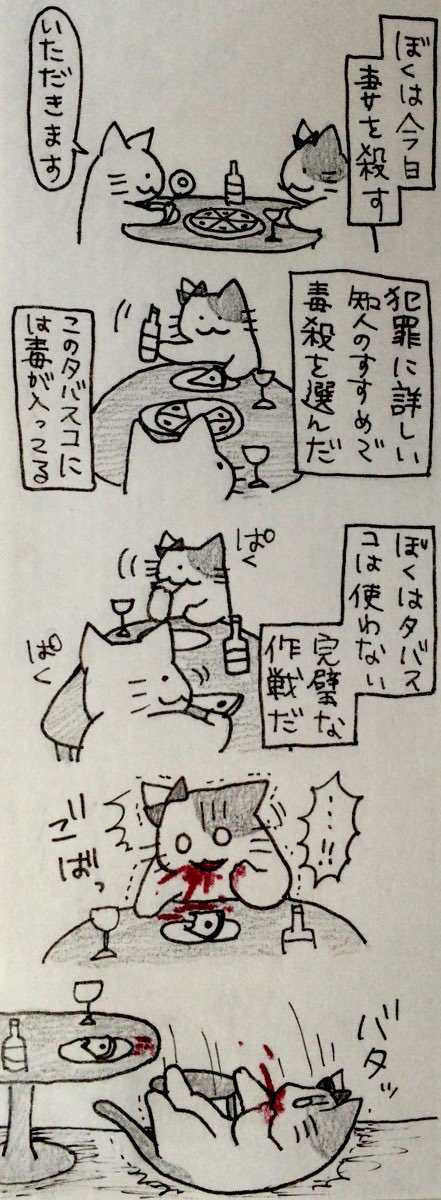 ぼくは今日
妻を殺す
いただきます
犯罪に詳しい
知人のすすめで
毒殺を選んだ
このタバスコに
は毒が入ってる
ぼくはタバス
コは使わない
完璧な
作戦だ
ぱく
ぱく
…!!
ごばっ
バタッ